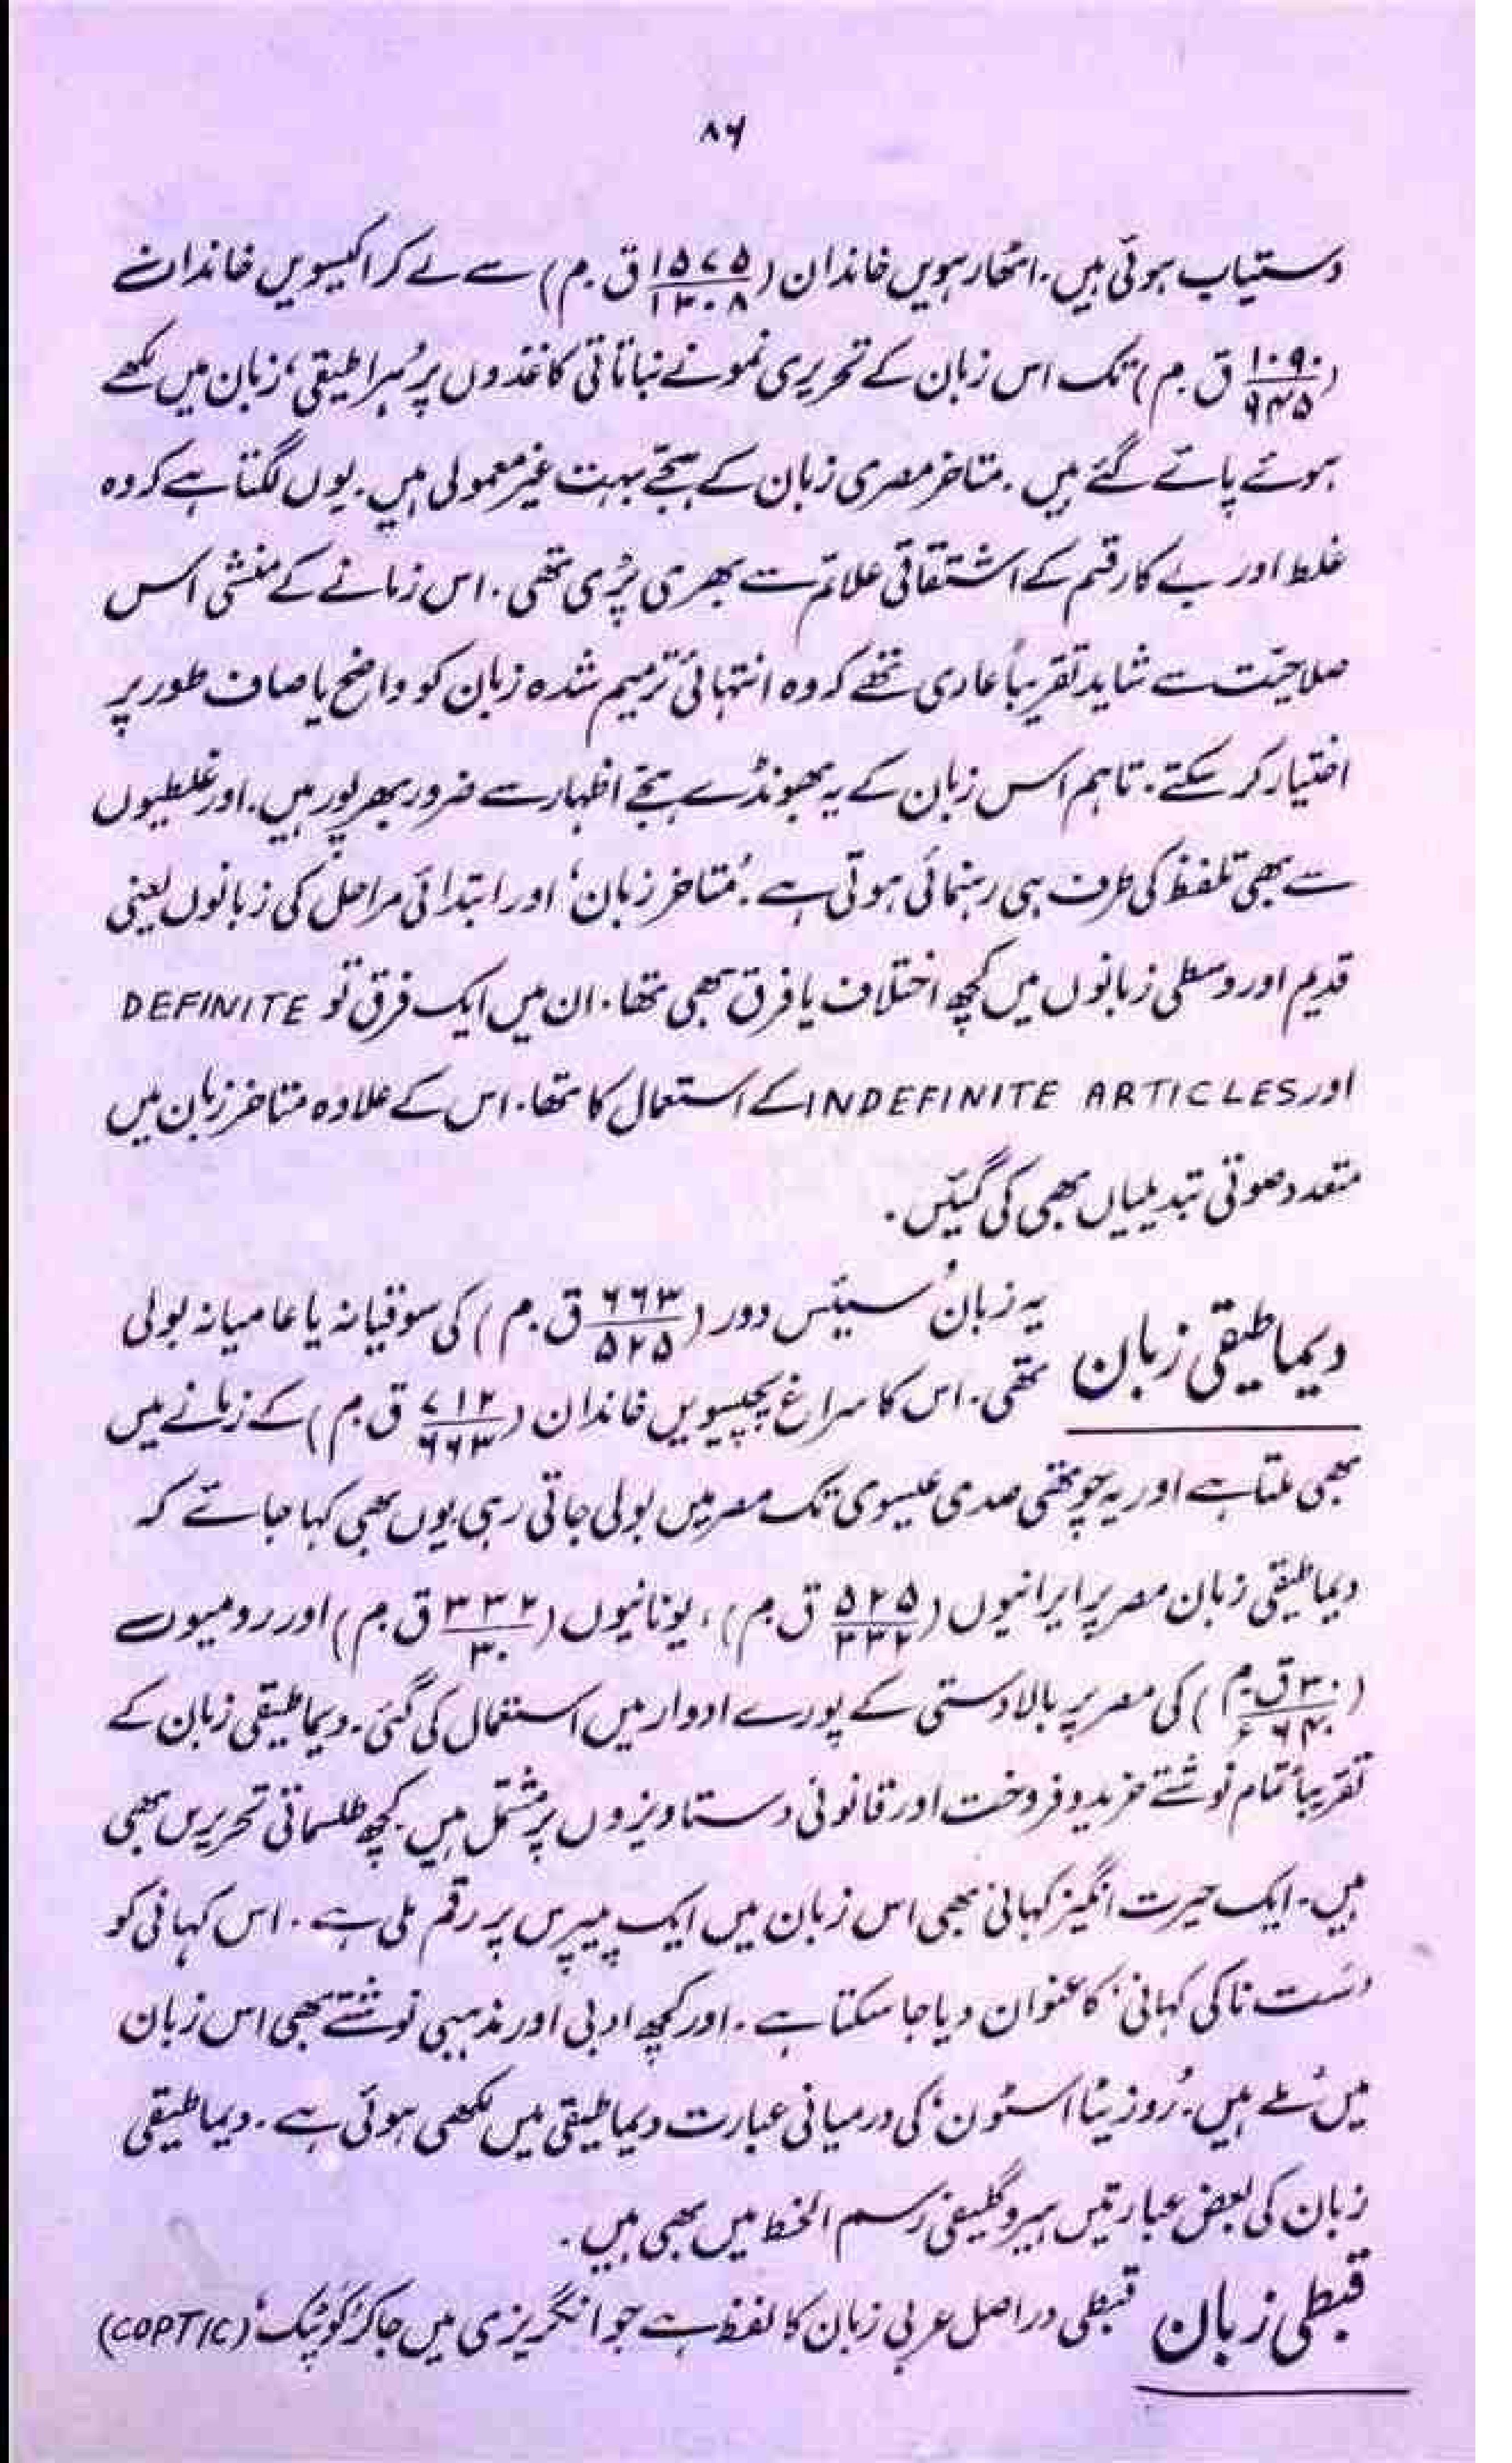 ۸۶
دستیاب ہوئی ہیں۔ اٹھارہویں خاندان (۱۵۷۵/۱۳۰۸ ق۔م) سے لے کر اکیسویں خاندان
(۱۰۹۰/۹۴۵ ق۔م) تک اس زبان کے تحریری نمونے نباتاتی کاغذوں پر 'ہراطیقی' زبان میں لکھے
ہوئے پائے گئے ہیں۔ متاخر مصری زبان کے ہجے بہت غیر معمولی ہیں۔ یوں لگتا ہے کہ وہ
غلط اور بے کار قسم کے اشتقاقی علائم سے بھری پڑی تھی۔ اس زمانے کے منشی اس
صلاحیت سے شاید تقریباً عاری تھے کہ وہ انتہائی ترمیم شدہ زبان کو واضح یا صاف طور پر
اختیار کر سکتے۔ تاہم اس زبان کے یہ بھونڈے ہجے اظہار سے ضرور بھرپور ہیں۔ اور غلطیوں
سے بھی تلفظ کی طرف ہی رہنمائی ہوتی ہے۔ 'متاخر زبان' اور ابتدائی مراحل کی زبانوں یعنی
قدیم اور وسطی زبانوں میں کچھ اختلاف یا فرق بھی تھا۔ ان میں ایک فرق تو DEFINITE
اور INDEFINITE ARTICLES کے استعمال کا تھا۔ اس کے علاوہ متاخر زبان میں
متعدد صوتی تبدیلیاں بھی کی گئیں۔
دیماطیقی زبان یہ زبان 'سیئس دور (۶۶۳/۵۲۵ ق۔م) کی سوقیانہ یا عامیانہ بولی
تھی۔ اس کا سراغ پچیسویں خاندان (۷۱۲/۶۶۳ ق۔م) کے زمانے میں
بھی ملتا ہے اور یہ چوتھی صدی عیسوی تک مصر میں بولی جاتی رہی یوں بھی کہا جائے کہ
دیماطیقی زبان مصر پر ایرانیوں (۵۲۵/۳۳۲ ق۔م)، یونانیوں (۳۳۲/۳۰ ق۔م) اور رومیوں
(۳۰ ق۔م/۶۴۰ء) کی مصر پر بالادستی کے پورے ادوار میں استعمال کی گئی۔ دیماطیقی زبان کے
تقریباً تمام نوشتے خرید و فروخت اور قانونی دستاویزوں پر مشتمل ہیں۔ کچھ طلسماتی تحریریں بھی
ہیں۔ ایک حیرت انگیز کہانی بھی اس زبان میں ایک پیپرس پر رقم ملی ہے۔ اس کہانی کو
'ست ناکی کہانی' کا عنوان دیا جا سکتا ہے۔ اور کچھ ادبی اور مذہبی نوشتے بھی اس زبان
میں ملے ہیں۔ 'روزیٹا اسٹون' کی درمیانی عبارت دیماطیقی میں لکھی ہوئی ہے۔ دیماطیقی
زبان کی بعض عبارتیں ہیروگلیفی رسم الخط میں بھی ہیں۔
قبطی زبان قبطی دراصل عربی زبان کا لفظ ہے جو انگریزی میں جا کر 'کوپٹک' (COPTIC)